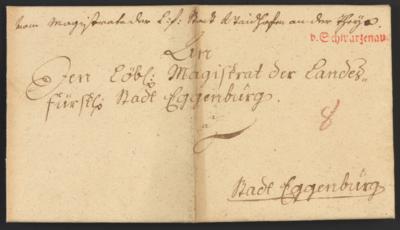 vom Magistrate der L:f: Stadt Waidhofen an der Theya.
v. Schwarzenau
An
Den Löbl: Magistrat der Landes-
fürstl: Stadt Eggenburg.
à
8
Stadt Eggenburg